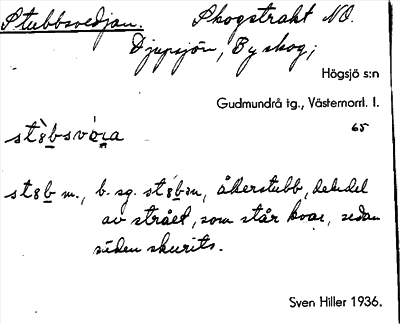 Stubbsvedjan. Skogstrakt NO.
Djupsjön, By skog;
Högsjö s:n
Gudmundrå tg., Västernorrl. l.
65
st8b m., b. sg. st8b-m, åkerstubb, den del
av strået, som står kvar, sedan
säden skurits.
Sven Hiller 1936.